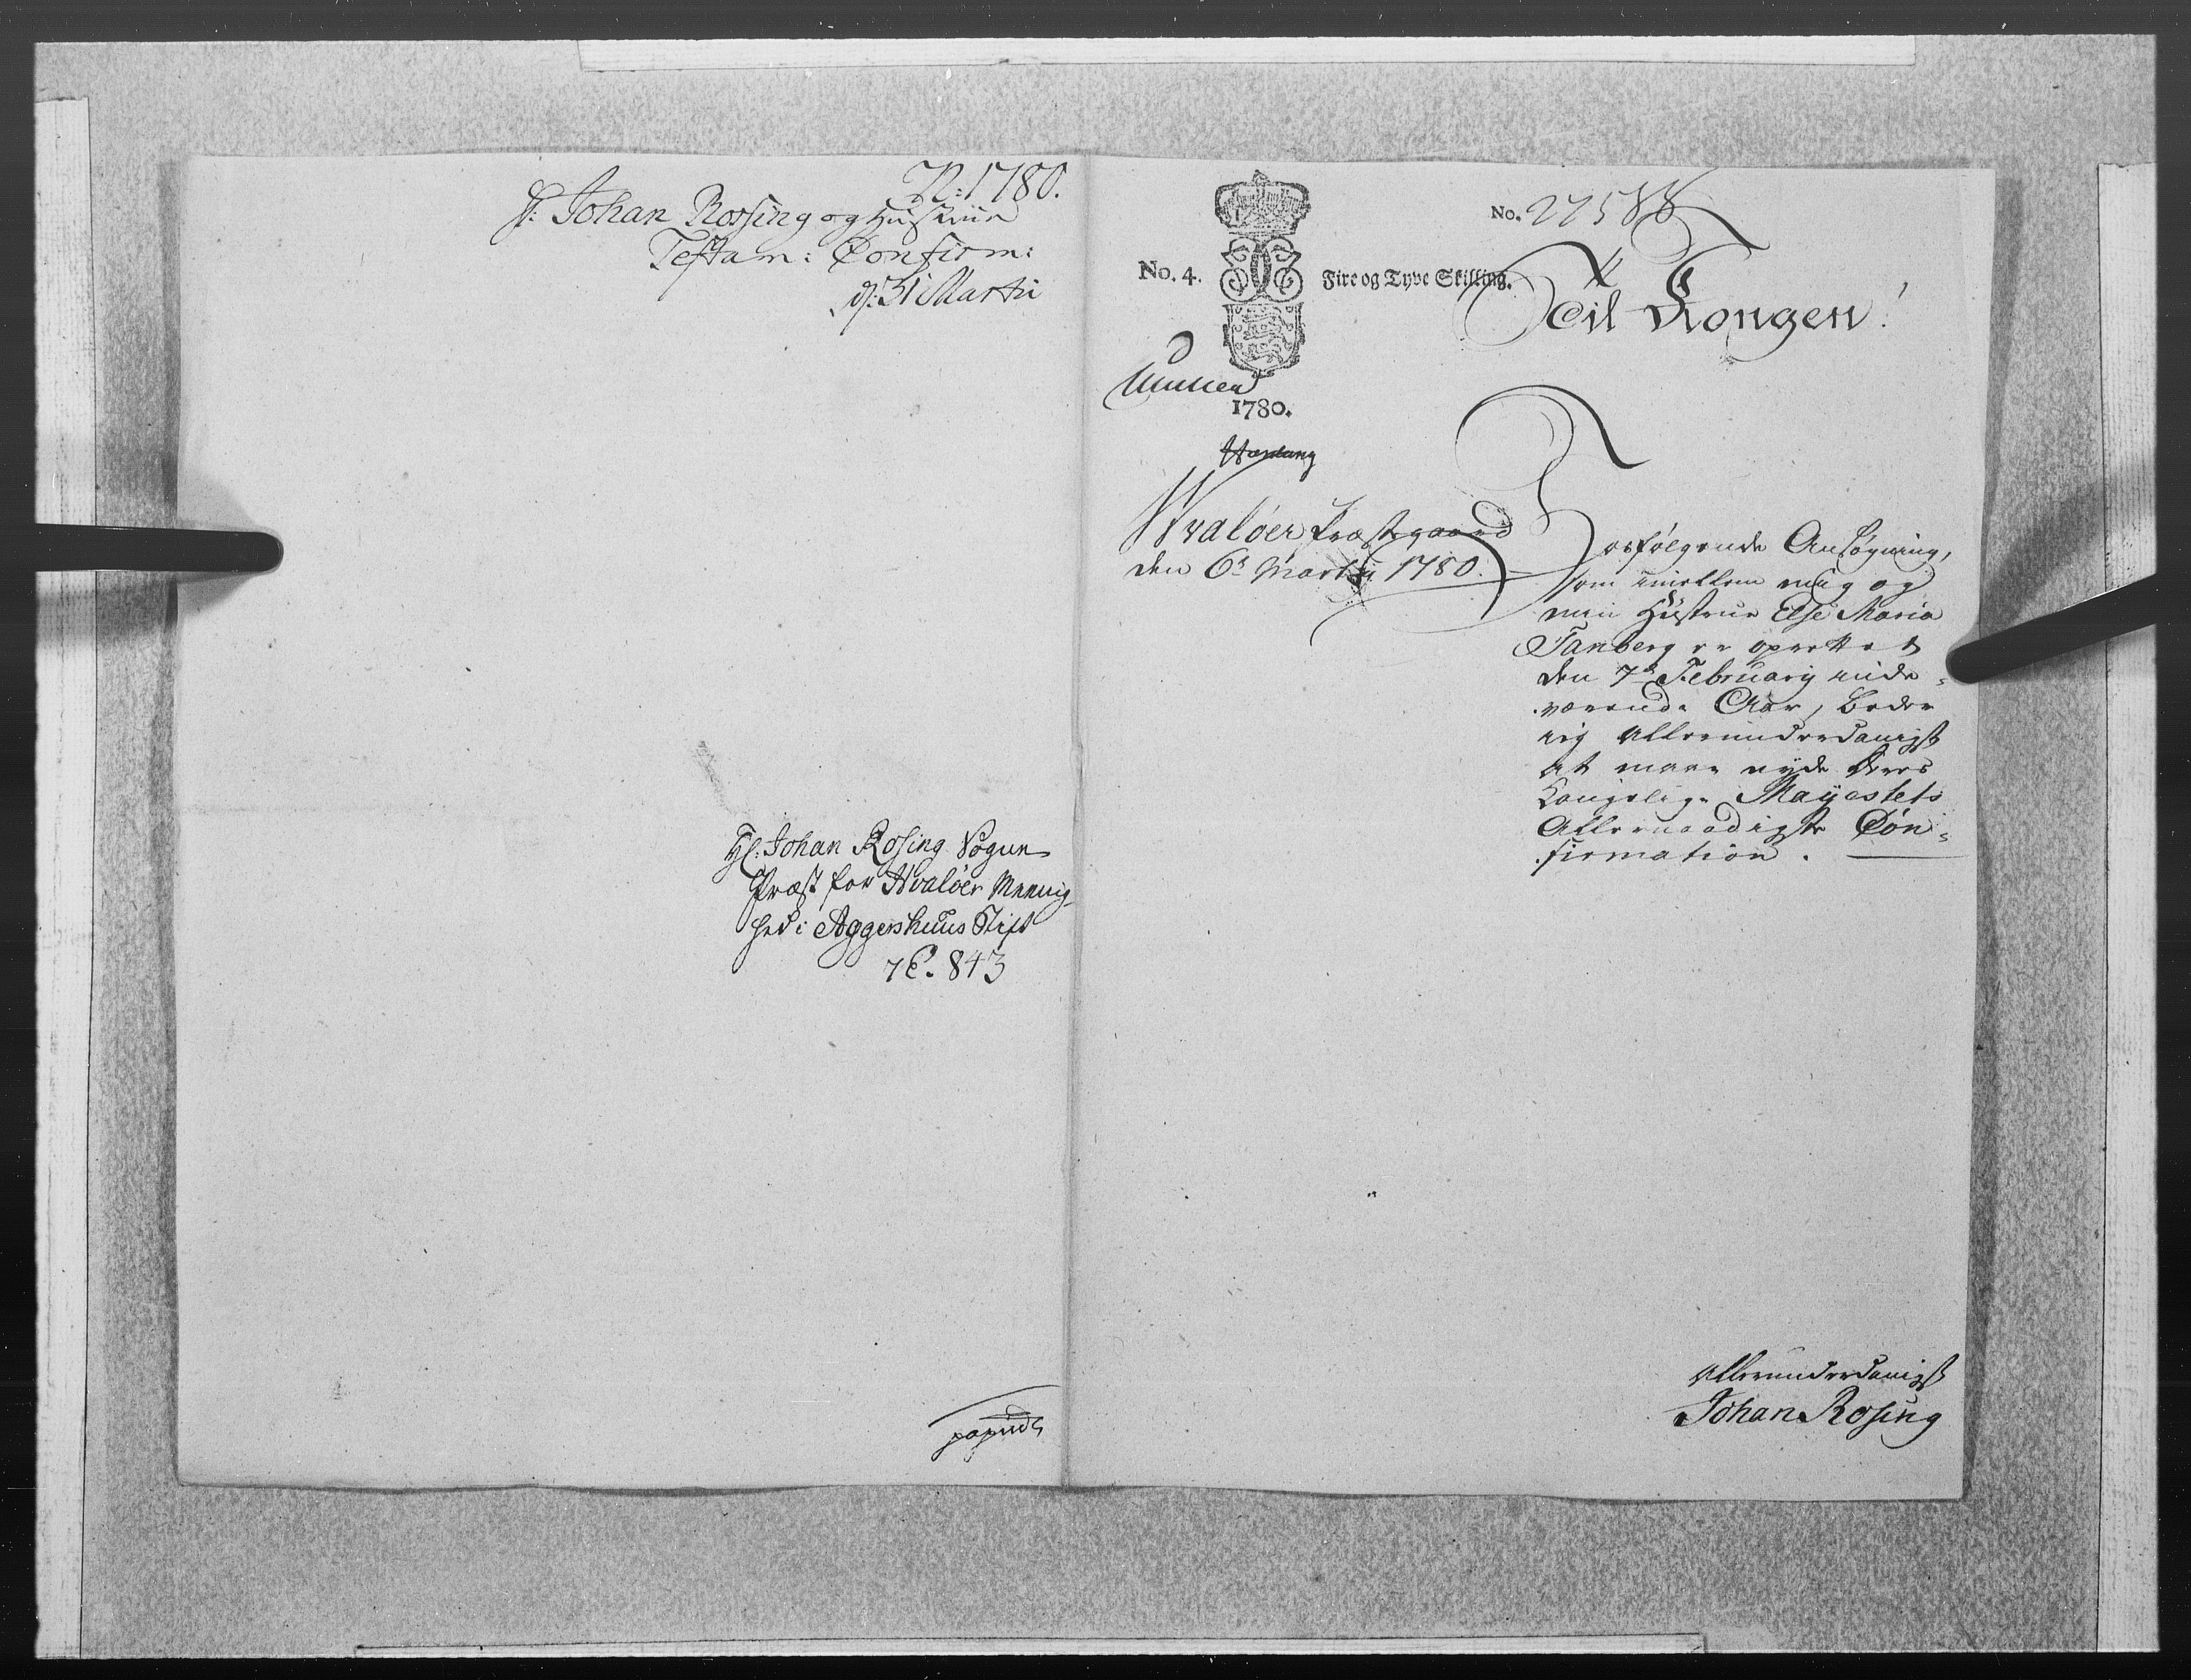 N: 1780.
H: Johan Rosing og Hustrue
Testam: Confirm:
d: 31 Martii
Hl: Johan Rosing Sogne
Præst for Hvalöer Menig-
hed i Aggershuus Stift
843
No. 27588
No. 4.
Fire og Tyve Skilling.
Til Kongen!
1780.
Hvalöer Præstegaard
den 6te Martii 1780.
Forfølgende Ansøgning,
som imellem mig og
min Hustrue Else Maria
Tanberg er oprettet
den 7de Februarij inde-
værende Aar, beder
jeg allerunderdanigst
at maae nyde Deres
Kongelige Mayestets
Allernaadigste Con-
firmation.
Allerunderdanigst
Johan Rosing